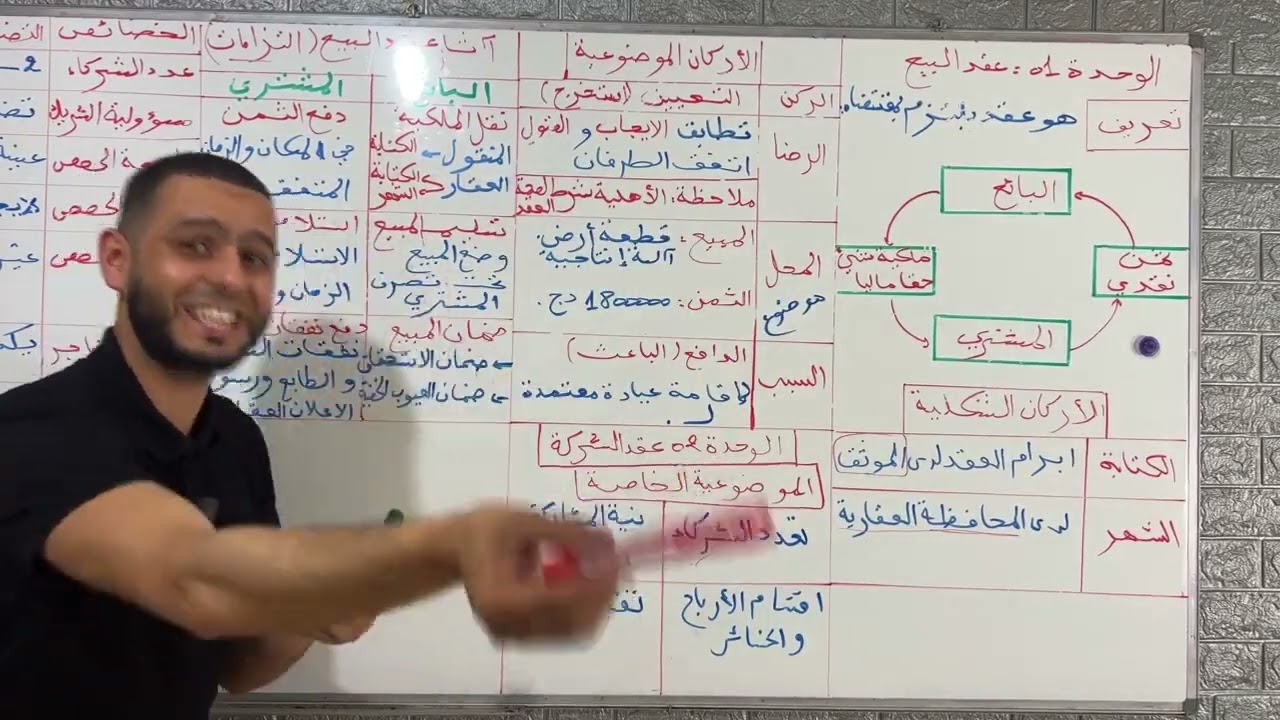 الوحدة 01: عقد البيع
تعريف
هو عقد يلتزم بمقتضاه
البائع
ملكية شيئ
حقا ماليا
ثمن
نقدي
المشتري
الأركان الشكلية
الكتابة
ابرام العقد لدى الموثق
الشهر
لدى المحافظة العقارية
الأركان الموضوعية
الركن
التعيين (استخرج)
الرضا
تطابق الايجاب و القبول
اتفق الطرفان
ملاحظة: الأهلية شرط لصحة العقد
المحل
هو موضوع
المبيع: قطعة أرض.
آلة إنتاجية
الثمن: 1800000 دج.
السبب
الدافع (الباعث)
لإقامة عيادة معتمدة
الوحدة 02 عقد الشركة
الموضوعية الخاصة
تعدد الشركاء
نية
اقتسام الأرباح
و الخسائر
البيع (التزامات)
المشتري
نقل الملكية
المنقول ← الكتابة
العقار ← الكتابة
الشهر
تسليم المبيع
وضع المبيع
تحت تصرف
المشتري
ضمان المبيع
← ضمان الاستحقاق
← ضمان العيوب الخفية
دفع الثمن
في المكان والزمان
المتفق
الزمان و
دفع نفقات
نفقات
و الطابع ورسوم
الاعلان
الخصائص
عدد الشركاء
مسؤولية الشريك
الحصص
2